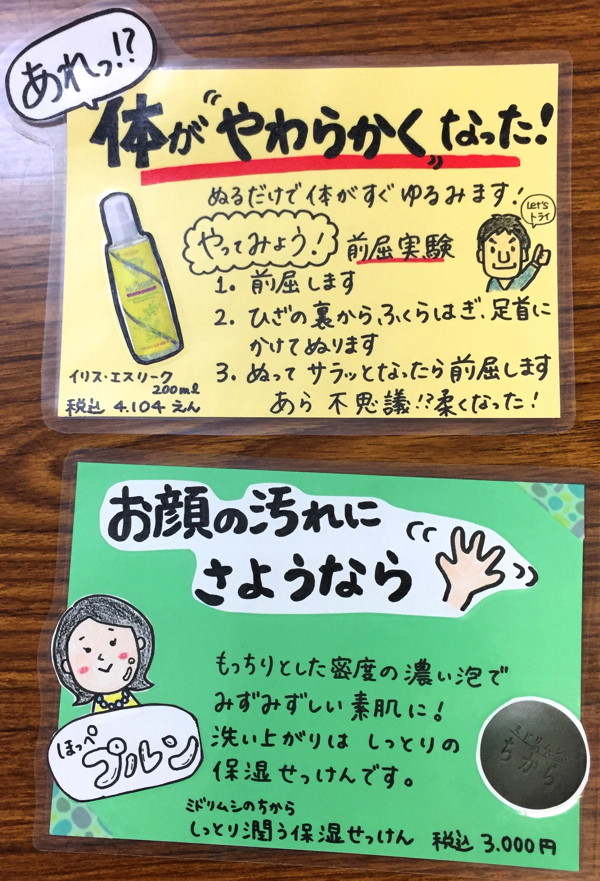 あれっ!?
体が〝やわらかく〟なった!
ぬるだけで体がすぐゆるみます!
Let's
トライ
やってみよう! 前屈実験
1. 前屈します
2. ひざの裏から、ふくらはぎ、足首に
かけてぬります
3. ぬって サラッとなったら前屈します
あら 不思議!?柔くなった!
イリス・エスリーク
200ml
税込 4.104 えん
お顔の汚れに
さようなら
もっちりとした密度の濃い泡で
みずみずしい素肌に!
洗い上がりは しっとりの
保湿せっけんです。
ほっぺ
プルン
ミドリムシ
ちから
ミドリムシのちから
しっとり潤う保湿せっけん 税込 3.000円